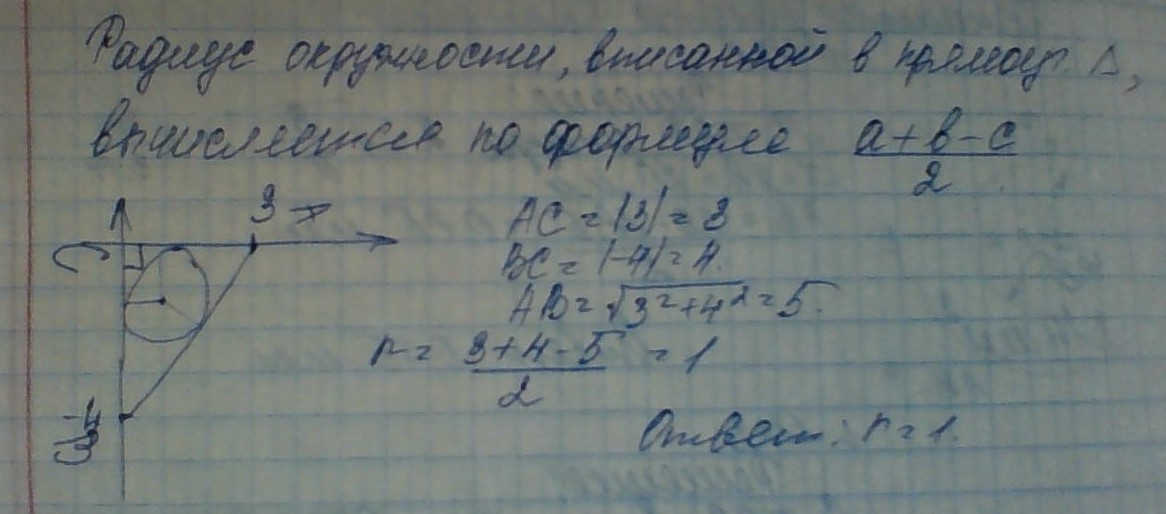 Радиус окружности, вписанной в прямоуг. Δ,
вычисляется по формуле (a+b-c)/2
3 A
C
-4
B
AC = |3| = 3
BC = |-4| = 4.
AB = √(3²+4²) = 5.
r = (3+4-5)/2 = 1
Ответ: r = 1.